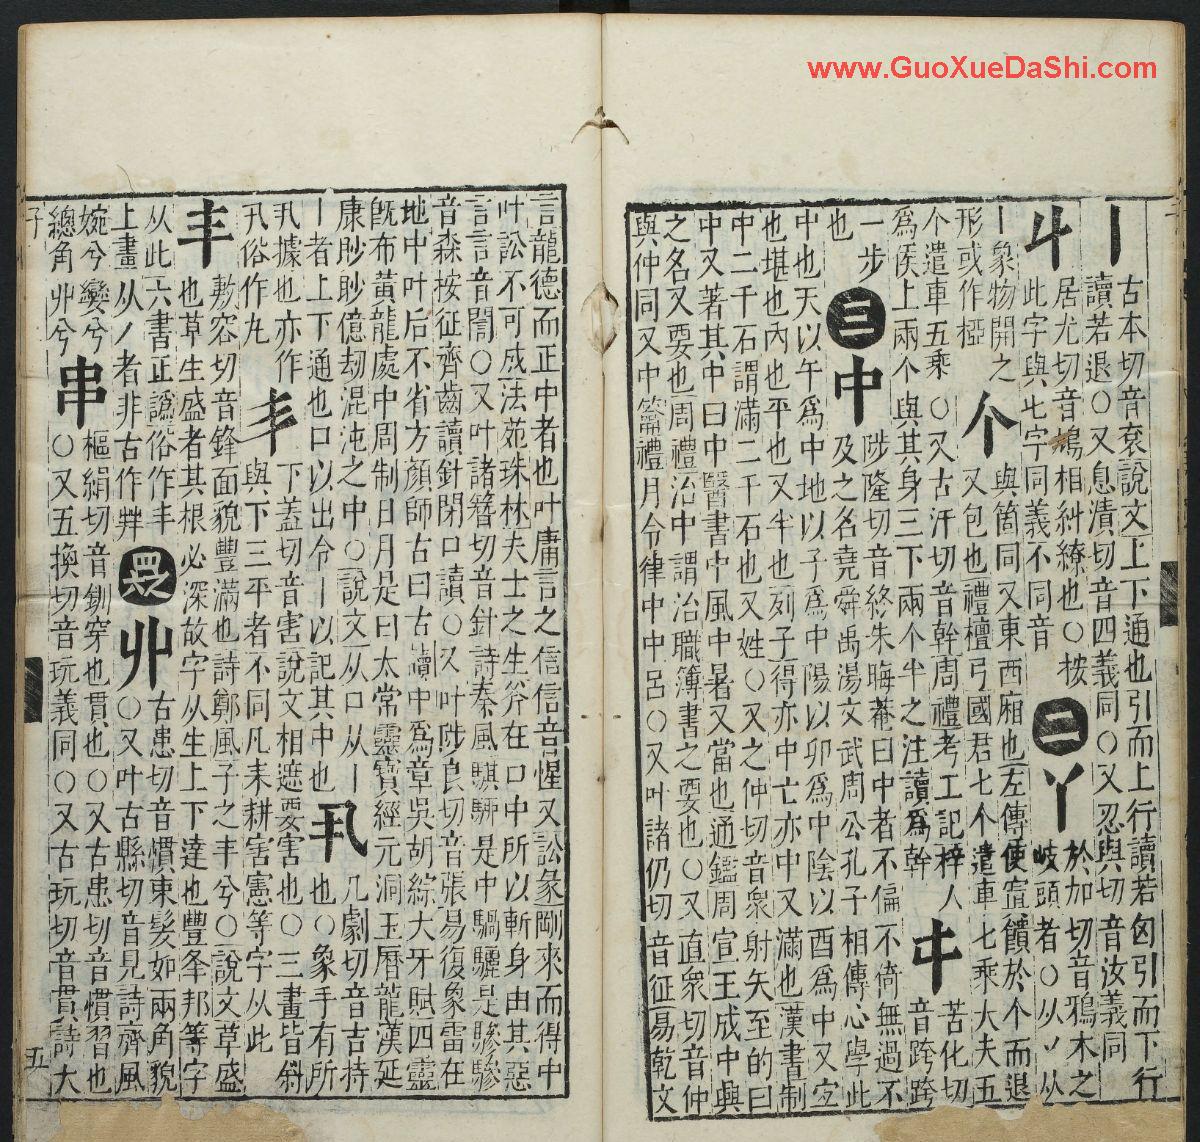 www.GuoXueDaShi.com
丨 古本切音袞說文上下通也引而上行讀若囟引而下行
讀若退○又息漬切音四義同○又忍與切音汝義同
丩 居尤切音鳩相糾繚也○按 二 丫 於加切音鴉木之
此字與七字同義不同音 岐頭者○从丷从
丨象物開之 个 與箇同又東西廂也左傳使寘饋於个而退
形或作椏 又包也禮檀弓國君七个遣車七乘大夫五
个遣車五乘○又古汗切音幹周禮考工記梓人 㐄 苦化切
爲侯上兩个與其身三下兩个半之注讀爲幹 音跨跨
一步 三 中 陟隆切音終朱晦菴曰中者不偏不倚無過不
也 及之名堯舜禹湯文武周公孔子相傳心學此
中也天以午爲中地以子爲中陽以卯爲中陰以酉爲中又空
也堪也內也平也又半也列子得亦中亡亦中又滿也漢書制
中二千石謂滿二千石也又姓○又之仲切音衆射矢至的曰
中又著其中曰中醫書中風中暑又當也通鑑周宣王成中興
之名又要也周禮治中謂治職簿書之要也○又直衆切音仲
與仲同又中籥禮月令律中中呂○又叶諸仍切音征易乾文
言龍德而正中者也叶庸言之信信音惺又訟彖剛來而得中
叶訟不可成法苑珠林夫士之生斧在口中所以斬身由其惡
言言音誾○又叶諸簪切音針詩秦風騏駵是中騧驪是驂驂
音森按征齊齒讀針閉口讀○又叶陟良切音張易復象雷在
地中叶后不省方顏師古曰古讀中爲章吳胡綜大牙賦四靈
旣布黃龍處中周制日月是曰太常靈寶經元洞玉曆龍漢延
康眇眇億劫混沌之中○說文从口从丨 丮 几劇切音吉持
丨者上下通也口以出令丨以記其中也 也○象手有所
丮據也亦作 丯 下蓋切音害說文相遮要害也○三畫皆斜
丮俗作九 與下三平者不同凡耒耕害憲等字从此
丰 敷容切音鋒面貌豐滿也詩鄭風子之丰兮○說文草盛
也草生盛者其根必深故字从生上下達也豐夆邦等字
从此六書正譌俗作丰 四之 丱 古患切音慣束髮如兩角貌
上畫从丿者非古作𡴀 ○又叶古縣切音見詩齊風
婉兮孌兮 串 樞絹切音釧穿也貫也○又古患切音慣習也
總角丱兮 ○又五換切音玩義同○又古玩切音貫詩大
子
五